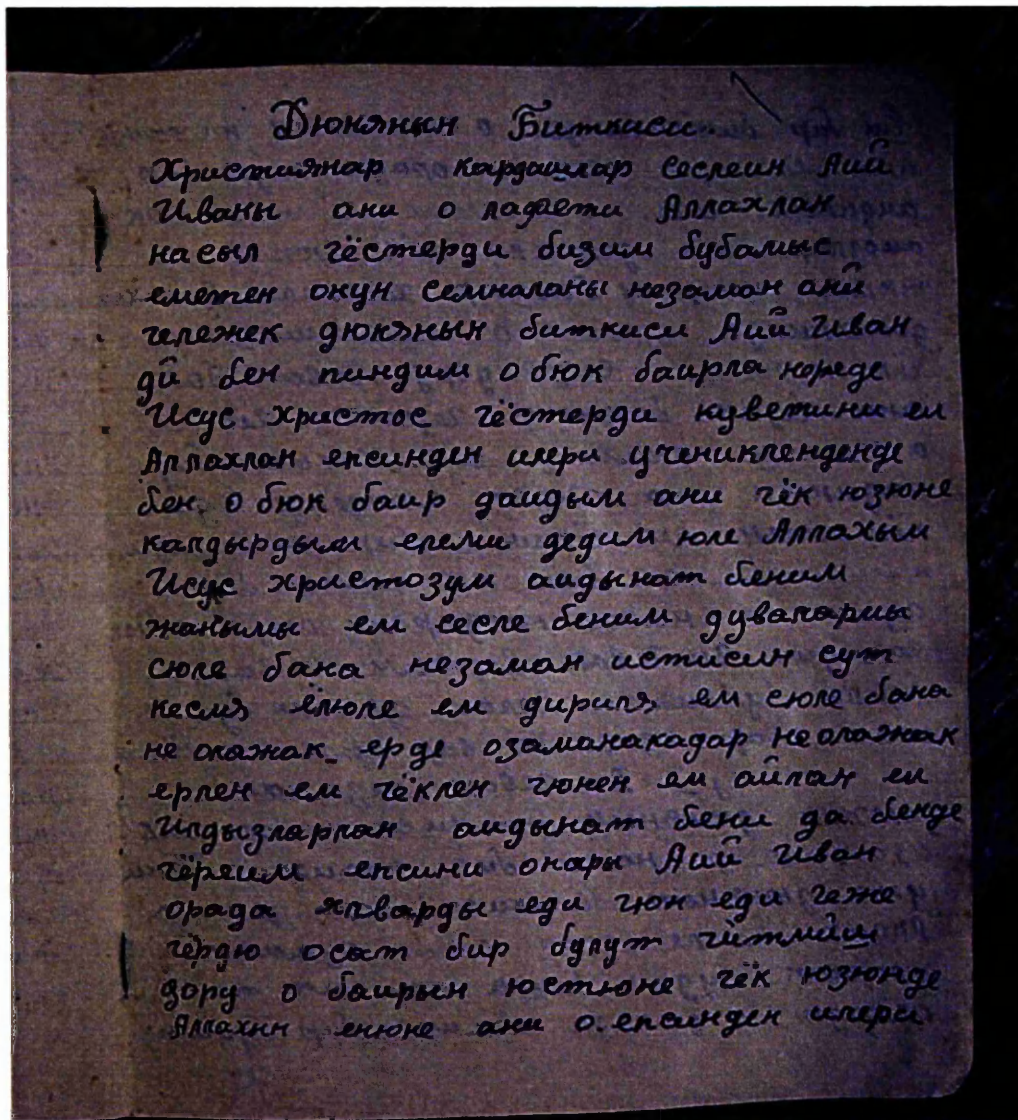 Дюнянын Биткиси
Християнар кардашлар сеслеин Аий
Иваны ани о лафети Аллахлан
насыл гёстерди бизим бубамыс
еметен окун семналаны незаман ани
гележек дюнянын биткиси Аий Иван
дй бен пиндим о бюк баирла нереде
Исус христос гёстерди куветини ем
Аллахлан епсинден илери учениклендende
бен о бюк баир даидым ани гёк юзюне
калдырдым елеми дедим юле Аллахым
Исус христозум аидынат беним
жанымы ем сесле беним дувалармы
сюле бана незаман истисин сут
кесмя ёлюле ем дириля ем сюле бана
не олажак ерде озаманакадар не олажак
ерлен ем гёклен гюнен ем айлан ем
Илдызларлан аидынат бени да бенде
гёреим епсини онары Аий Иван
орада ялварды еди гюн еди геже
гёрдю осыт бир булут гитмиш
дору о баирын юстюне гёк юзюнде
Аллахнн енюне ани о епсинден илери